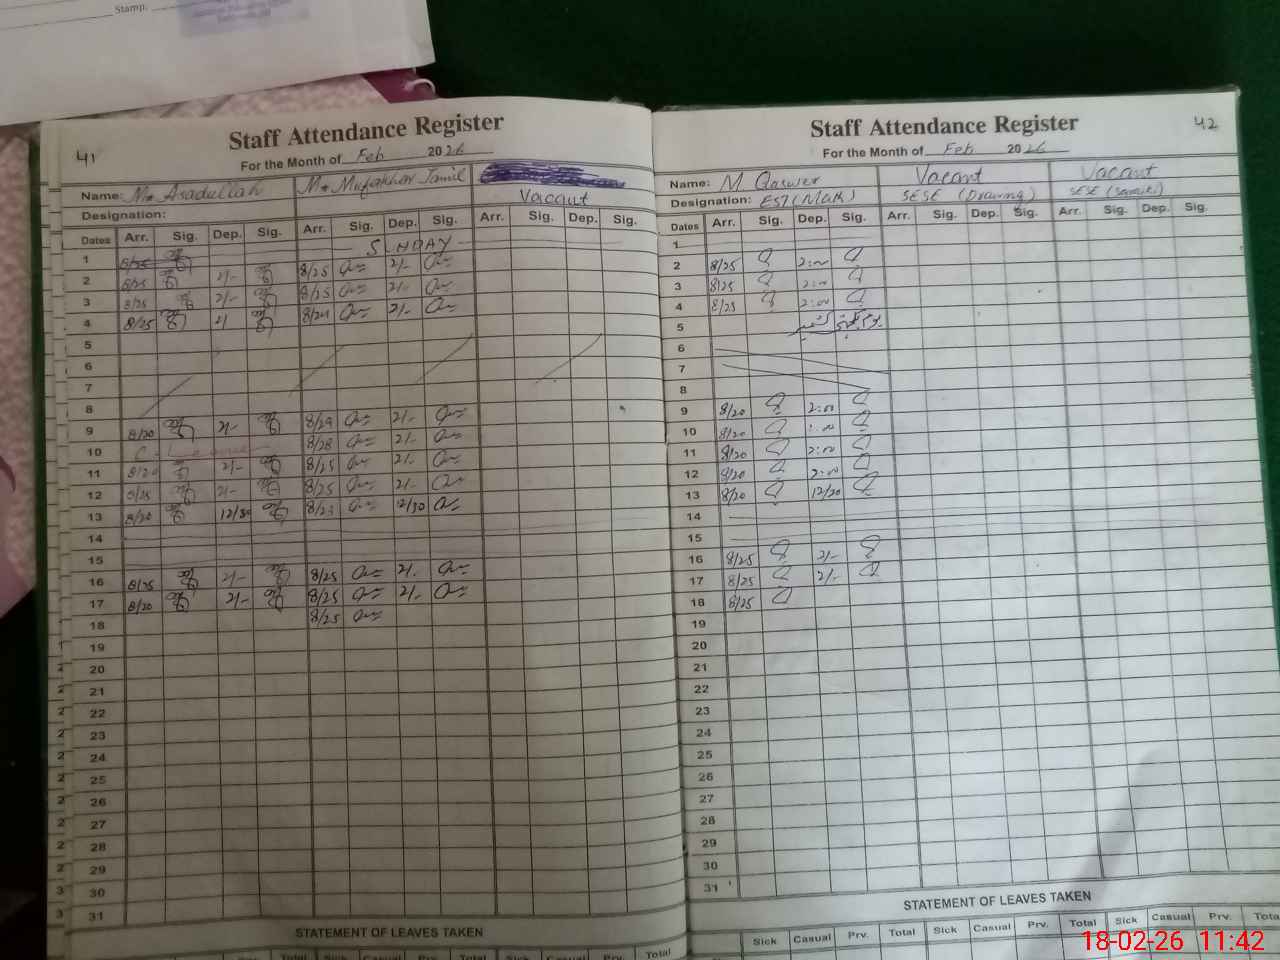 Stamp:
41
Staff Attendance Register
For the Month of Feb 2026
Name: Mr Asadullah Mr Mufakhar Jamil
Vacant
Designation:
Dates Arr. Sig. Dep. Sig. Arr. Sig. Dep. Sig. Arr. Sig. Dep. Sig.
1 8/25 SUNDAY
2 8/25 2/- 8/25 2/-
3 8/25 2/- 8/25 2/-
4 8/25 2/ 8/24 2/-
5
6
7
8
9 8/20 2/- 8/29 2/-
10 8/28 2/-
11 8/20 2/- 8/25 2/-
12 8/25 2/- 8/25 2/-
13 8/20 12/30 8/23 12/30
14
15
16 8/25 2/- 8/25 2/-
17 8/20 2/- 8/25 2/-
18 8/25
19
20
21
22
23
24
25
26
27
28
29
30
31
STATEMENT OF LEAVES TAKEN
Sick Casual Prv. Total
42
Staff Attendance Register
For the Month of Feb 2026
Name: M Qaswer Vacant Vacant
Designation: EST (Math) SESE (Drawing) SESE
Dates Arr. Sig. Dep. Sig. Arr. Sig. Dep. Sig. Arr. Sig. Dep. Sig.
1
2 8/25 2:00
3 8/25 2:00
4 8/25 2:00
5 یوم یکجہتی کشمیر
6
7
8
9 8/20 2:00
10 8/20
11 8/20 2:00
12 8/20 2:00
13 8/20 12/20
14
15
16 8/25 2/-
17 8/25 2/-
18 8/25
19
20
21
22
23
24
25
26
27
28
29
30
31
STATEMENT OF LEAVES TAKEN
Sick Casual Prv. Total Sick Casual Prv. Total Sick Casual Prv.
18-02-26 11:42